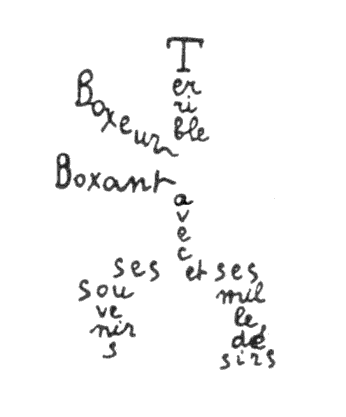 T
er
ri
ble
Boxeur
Boxant
a
v
e
c
ses
sou
ve
nir
s
et ses
mil
le
dé
sirs